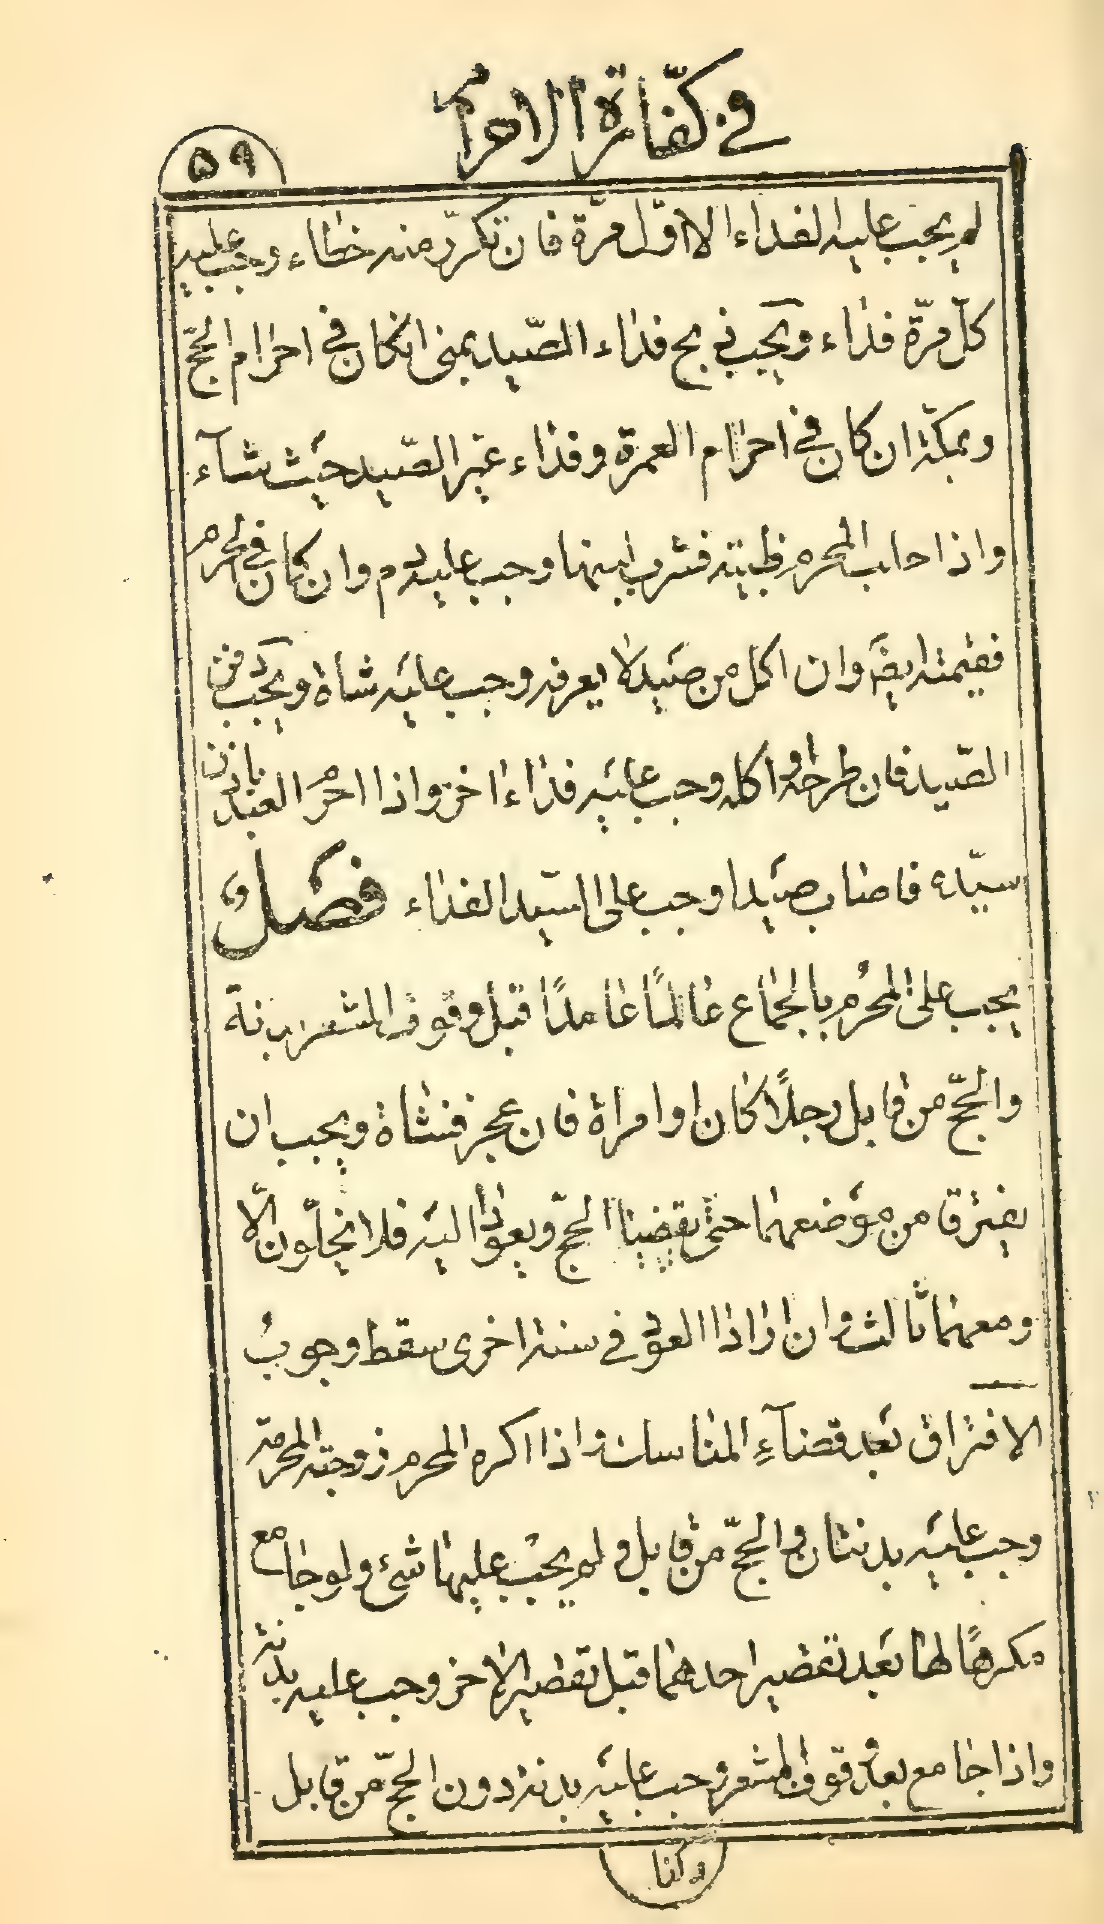 في كفّارة الاحرام
٥٩
لم يجب عليه الفداء الا اوّل مرّة فان تكرّر منه خطاء وجب عليه
كلّ مرّة فداء ويجب ذبح فداء الصّيد بمنى انكان في احرام الحجّ
وبمكّة ان كان في احرام العمرة وفداء غير الصّيد حيث شآء
واذا حلب المحرم ظبية فشرب لبنها وجب عليه دم وان كان في الحرم
فقيمته ايضا وان اكل من صيد لا يعرفه وجب عليه شاة ويجب دفن
الصّيد فان طرحه او اكله وجب عليه فداء اخر واذا احرم العبد باذن
سيّده فاصاب صيدا وجب على السّيد الفداء فصل و
يجب على المحرم بالجماع عالمًا عامدًا قبل وقوف المشعر بدنة
والحجّ من قابل رجلًا كان او امراة فان عجز فشاة ويجب ان
يفترقا من موضعهما حتى يقضيا الحجّ ويعودا اليه فلا يخلّون الّا
ومعهما ثالث وان ارادا العود في سنة اخرى سقط وجوبُ
الافتراق بعد قضآءِ المناسك واذا اكره المحرم زوجته المحرمة
وجب عليه بدنتان والحجّ من قابل ولم يجب عليها شئ ولو جامع
مكرهًا لها بعد تقصير احدهما قبل تقصير الاخر وجب عليه بدنة
واذا جامع بعد وقوف المشعر وجب عليه بدنة دون الحجّ من قابل
وكذا